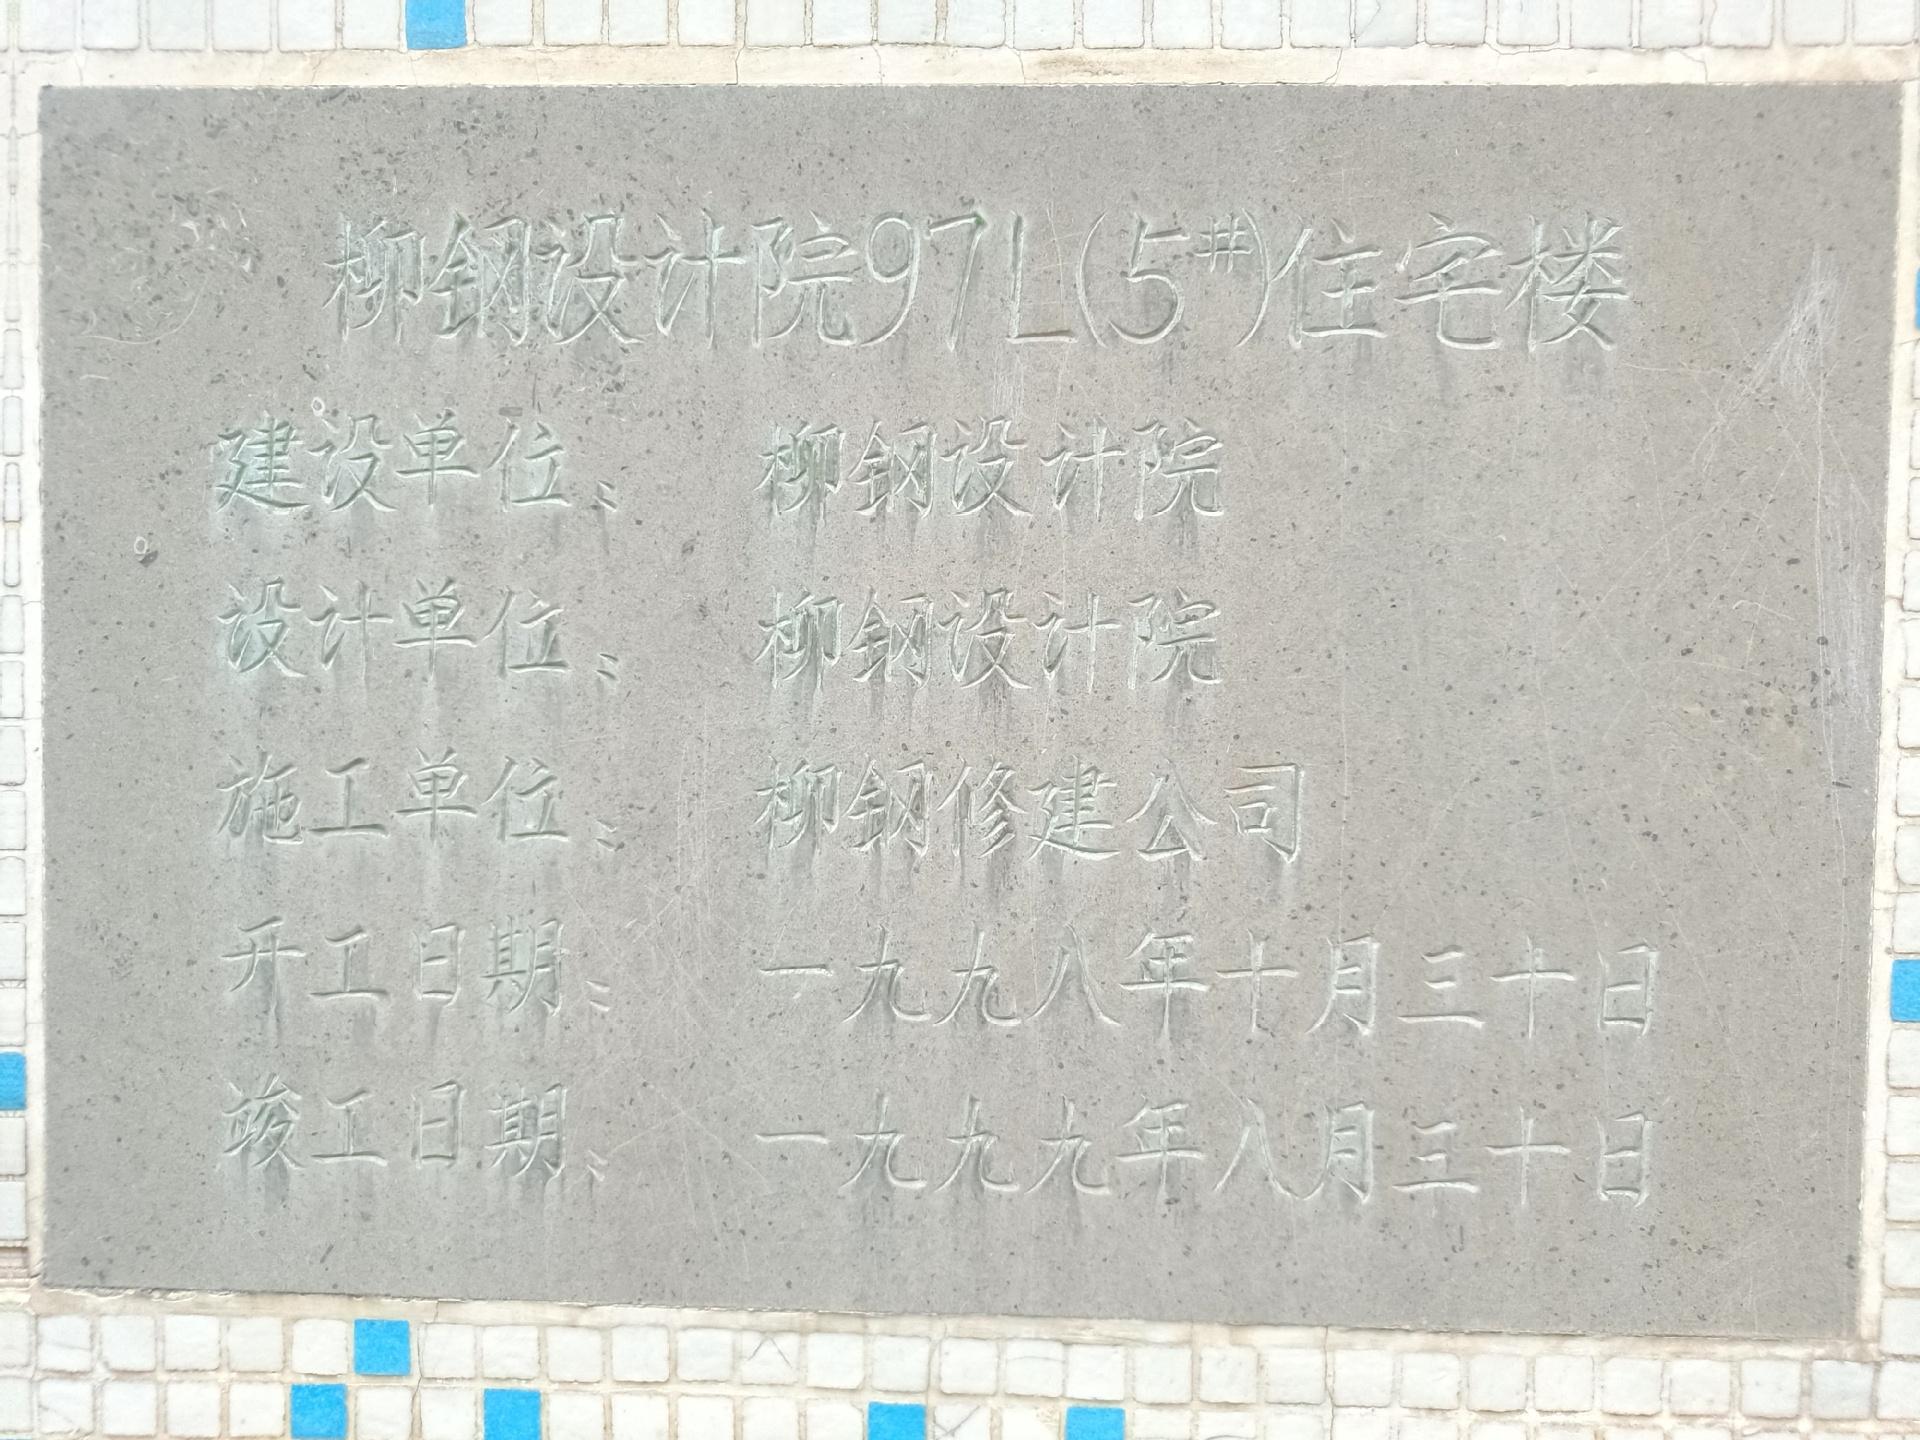 柳钢设计院97L(5#)住宅楼
建设单位: 柳钢设计院
设计单位: 柳钢设计院
施工单位: 柳钢修建公司
开工日期: 一九九八年十月三十日
竣工日期: 一九九九年八月三十日